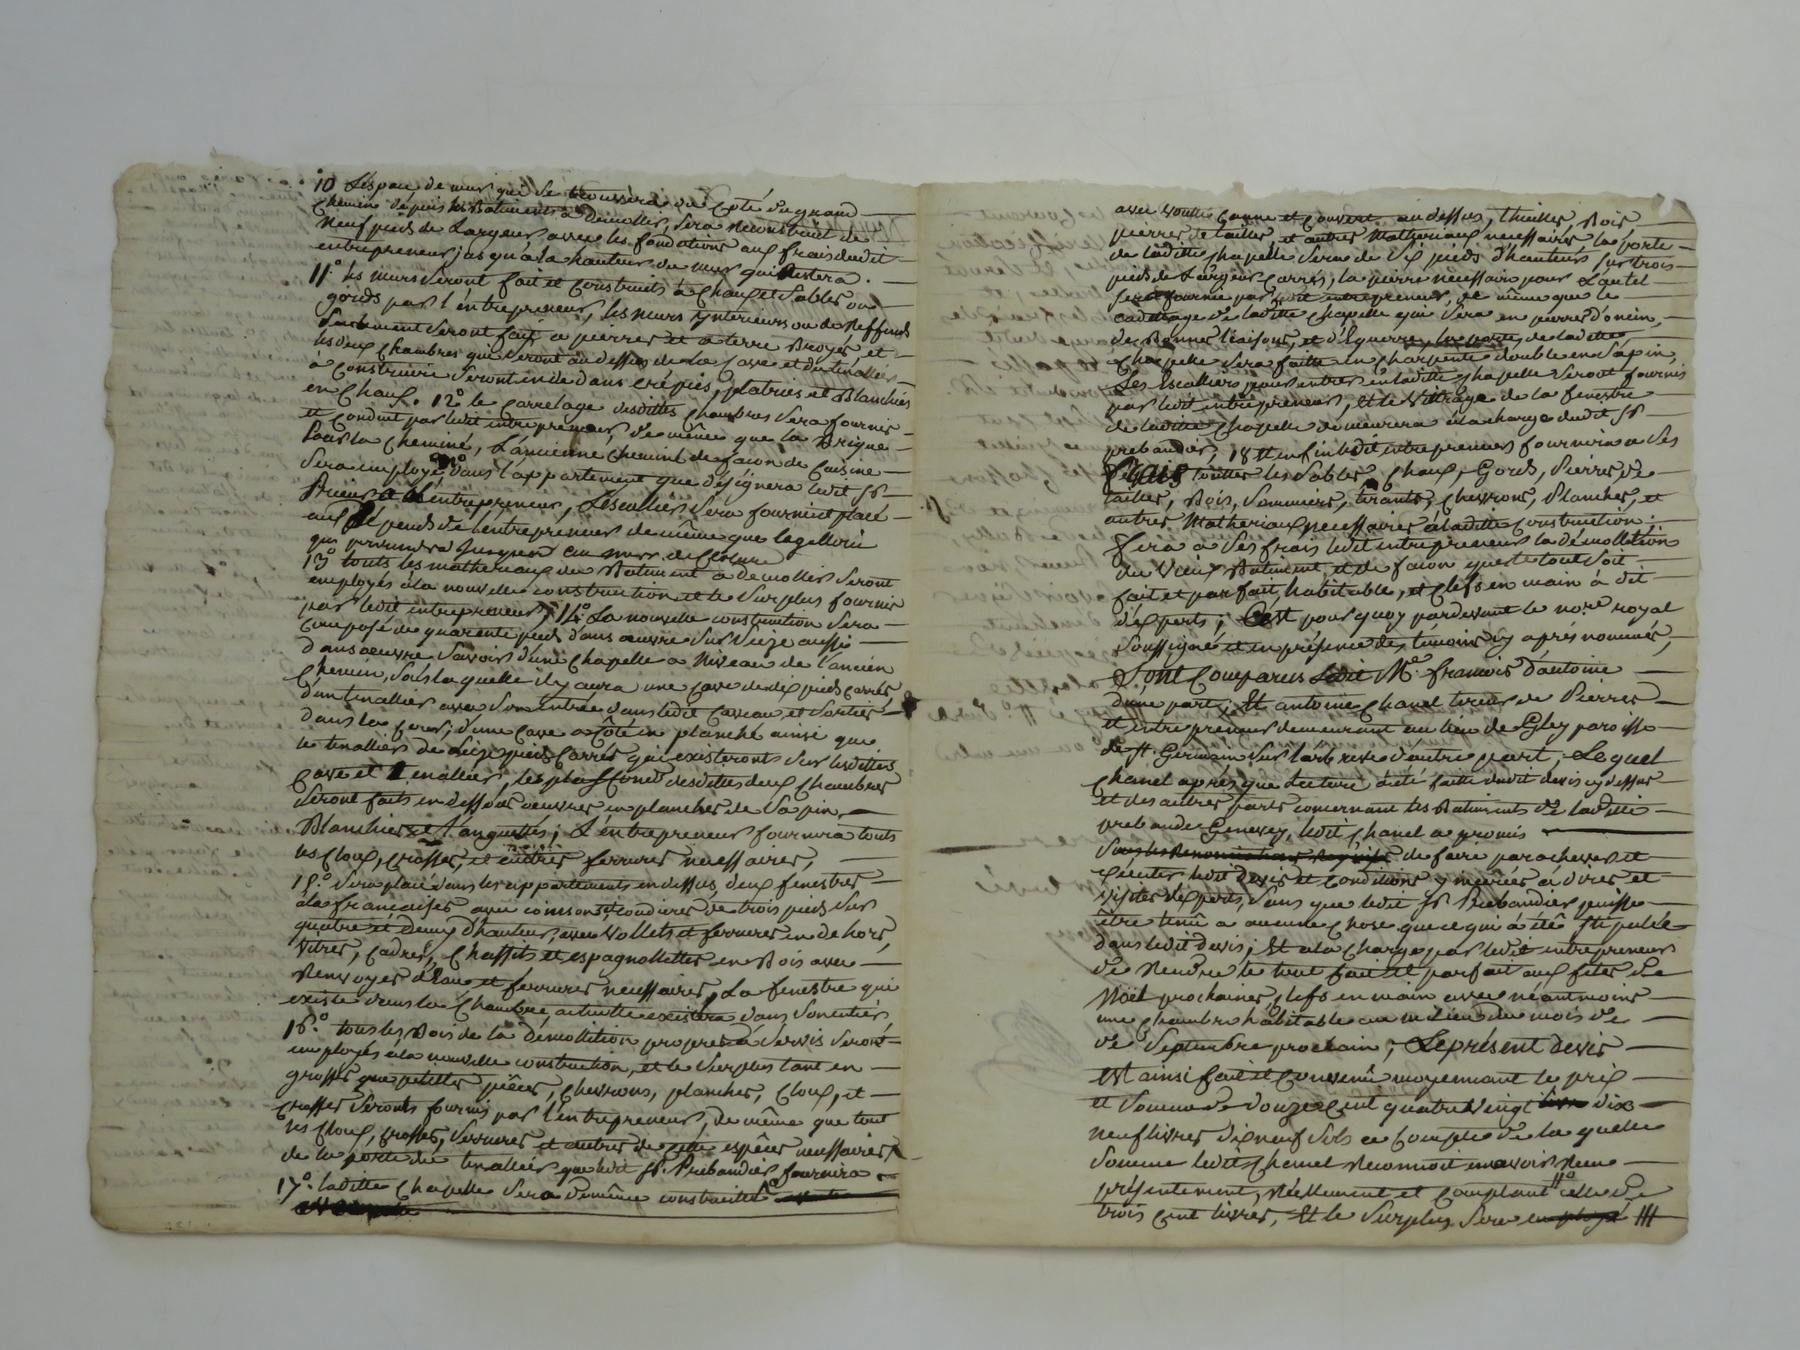 10 L'éspace de mur qui se trouvera du Coté du grand
Chemin depuis les Batiments a Demollir, sera Reconstruit de
Neuf pieds de Largeur avec les fondations aux frais dudit
entrepreneur jusqu'à la hauteur du mur qui Restera.
11.° les murs seront fait et Construits à Chaux et Sables ou
gords par l'éntrepreneur, les murs ynterieurs ou de Reffends
Seulement Seront fait a pierres et a terre Broyés et
les deux Chambres qui seront au dessus de la Cave et du tinallier
à Construire Seront en dedans crépies, platries et Blanchies
en Chaux. 12° le Carrelage desdittes Chambres Sera fournis
et Conduit par ledit entrepreneur, de même que la Brique
Pour la Cheminé, L'ancienne Cheminé de facon de Cuisine
Sera employé dans l'appartement que désignera ledit Sr
l'entrepreneur, L'escallier sera fournie et placé
aux dépends de l'entrepreneur de même que la gallerie
qui prendra Jusques au murr de Cloture
13° touts les matheriaux du Batiment a demollir Seront
employés a la nouvelle construction et le Surplus fournis
par ledit entrepreneur; 14.° La nouvelle construction Sera
Composé de quarente pieds dans œuvre Sur Seize aussi
dans œuvre Savoir d'une Chapelle a Niveau de l'ancien
Chemin, Sous laquelle il y aura une Cave de dix pieds carrés
d'un tinallier avec Son entrée dans ledit Caveau et Sortie
dans la Cour, d'une Cave a Côté en planché ainsi que
le tinallier de Seize pieds Carrés qui existeront Sur lesdittes
Cave et Tinallier, les plaffonds desdittes deux Chambres
Seront faits en dessous œuvres en planches de Sapin,
Blanchies et languettés; L'éntrepreneur fournira touts
les Cloux, Crosses, et autres ferrures nécessaires,
15.° Sera placé dans les appartements en dessus deux fenestres
a la françaises avec de trois pieds Sur
quatre et demy d'hauteur, avec Vollets et ferrures en dehors,
Vitres, Cadres, Chassits et espagnollettes en Bois avec
Renvoyer d'Eau et ferrures necessaires, La fenestre qui
existe dans la Chambre actuelle existera dans Son entier
16.° tous les Bois de la démollition propres a Servir Seront
employés a la nouvelle construction, et le Surplus tant en
grosses que petittes pièces, Chevrons, planches, Cloux, et
Crosses Seronts fournis par l'entrepreneur, de même que tout
les Cloux, Crosses, Serrures et autres de cette espèces necessaires
de la porte du tinallier que ledit Sr. Prebandier fournira
17.° laditte Chapelle Sera de même construitte
avec voutte Canne et Couvert au dessus, thuilles, Bois
pierres de tailles, et autres Matheriaux necessaires la porte
de laditte Chapelle Sera de Six pieds d'hauteur Sur trois
pieds de Largeur Carrés, la pierre necessaire pour L'autel
Sera fournie par ledit entrepreneur, de même que le
cadettage de laditte Chapelle qui Sera en pierres d'oncin,
de Bonnes liaisons, et d'Equerre, la porte de laditte
Chapelle Sera faitte en Charpente double en Sapin,
Les Escalliers pour entrer en laditte Chapelle Seront fournis
par ledit entrepreneur, et le Vittrage de la fenestre
de laditte Chapelle demeurera à la charge dudit Sr
prebandier, 18 et enfin ledit entrepreneur fournira a Ses
frais touttes les Sables, Chaux, Gords, Pierres de
tailles, Bois, Sommiers, tirants, Chevrons, Planches, et
autres Matheriaux necessaires a laditte Construction;
fera a Ses frais ledit entrepreneur la démollition
du Vieux Batiment, et de facon que le tout Soit
fait et parfait, habitable, et Clefs en main à dit
d'éxperts; C'est pourquoy pardevant le nore royal
Soussigné et en présence des témoins cy aprés nommés,
Sont Comparus Ledit Me françois d'antoine
d'une part, Et antoine Chanel tireur de Pierres
et entrepreneur demeurant au lieu de Glay paroisse
de St. Germain Sur l'arbresle d'autre part, Lequel
Chanel aprés que lecture a été faitte dudit devis cy dessus
et des autres parts concernant les Batiments de laditte
prebande Genevey, ledit Chanel a promis
de faire parachever et
éxécuter ledit Devis et Conditions y inserées à dires et
visites d'éxperts, Sans que ledit Sr Prebandier puisse
être tenû a aucune Chose que ce qui a êté Stipullé
dans ledit devis; et a la Charge par ledit entrepreneur
de Rendre le tout fait et parfait aux fetes de
Noël prochaines, Clefs en main avec néantmoins
une Chambre habitable au milieu du mois de
de Septembre prochain; Le présent devis
est ainsi fait et Convenû moyennant le prix
et Somme de douze Cent quatre Vingt dix
neuf livres dix neuf Sols a Compte de la quelle
Somme ledit Chanel Reconnoit en avoir Reçu
présentement, Réellement et Comptant celle de
trois Cent livres, Et le Surplus Sera